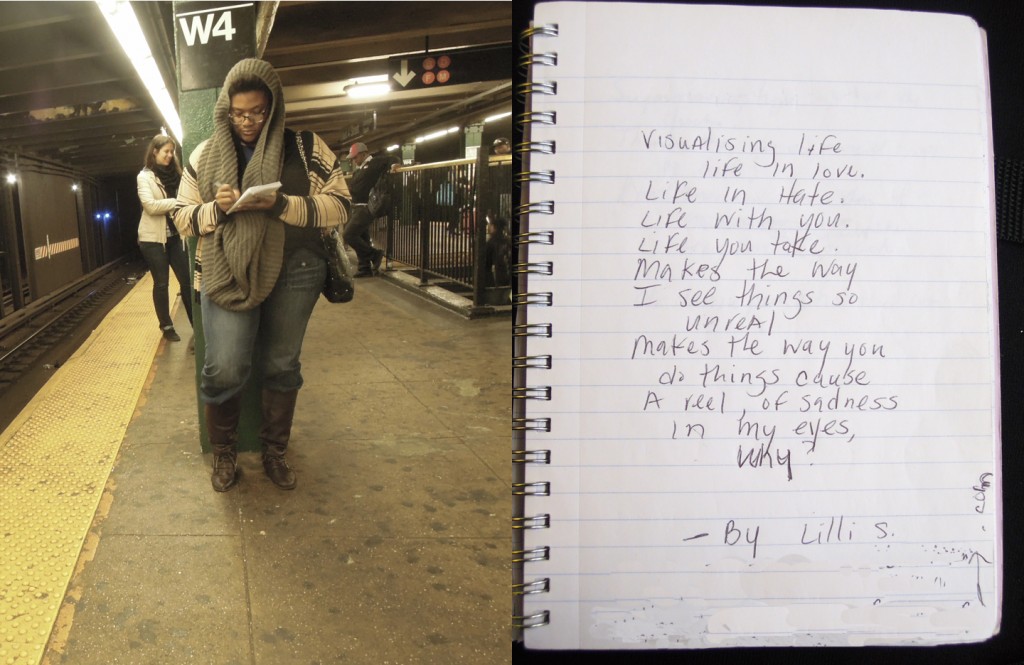 W4
Visualising life
life in love.
Life in Hate.
Life with you.
Life you take.
Makes the way
I see things so
unreal
Makes the way you
do things cause
A reel, of sadness
in my eyes,
Why?
- By Lilli S.